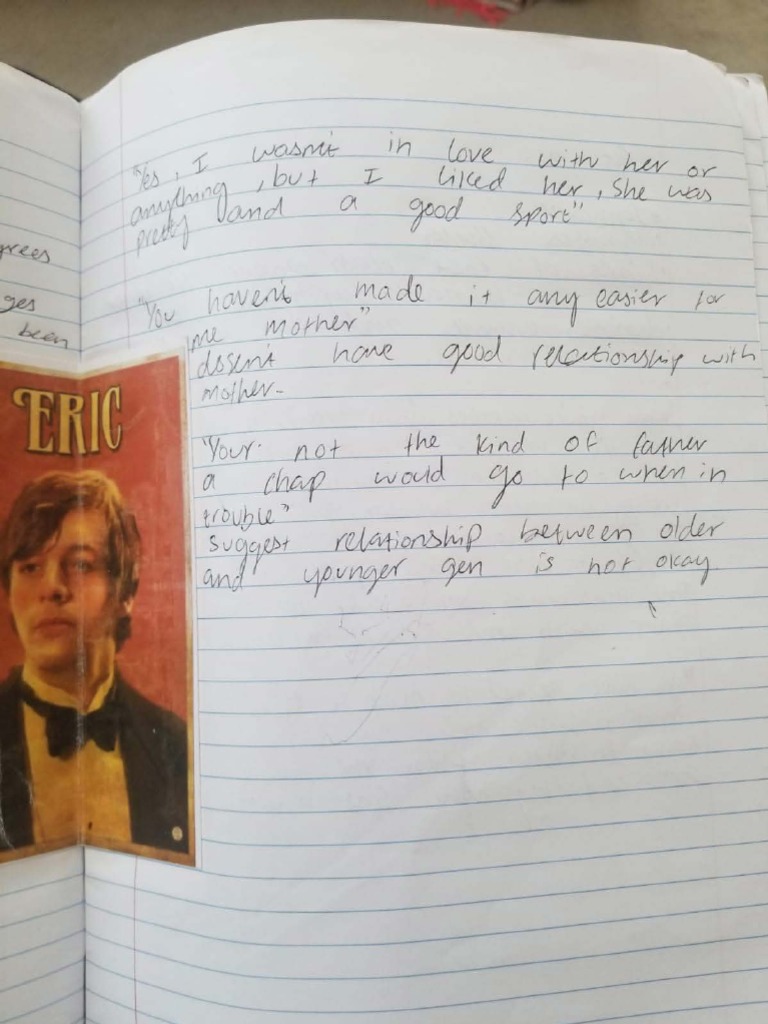 grees
ges
been
ERIC
"Yes, I wasn't in love with her or
anything, but I liked her, she was
pretty and a good sport"
"You haven't made it any easier for
me mother"
dosen't have good relectionship with
mother-
"Your. not the kind of father
a chap would go to when in
trouble"
suggest relationship between older
and younger gen is not okay